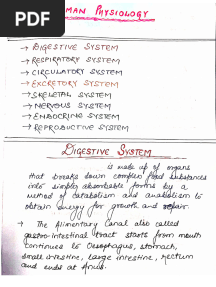 PDF
HUMAN PHYSIOLOGY
→ DIGESTIVE SYSTEM
→ RESPIRATORY SYSTEM
→ CIRCULATORY SYSTEM
→ EXCRETORY SYSTEM
→ SKELETAL SYSTEM
→ NERVOUS SYSTEM
→ ENDOCRINE SYSTEM
→ REPRODUCTIVE SYSTEM
DIGESTIVE SYSTEM
is make up of organs
that breaks down complex food substances
into simples absorbable forms by a
method of catabolism and anabolism to
obtain energy for growth and repair.
→ The Alimentary Canal also called
gastro-intestinal tract starts from mouth
continues to Oesophagus, stomach,
small intestine, large intestine, rectum
and ends at Anus.